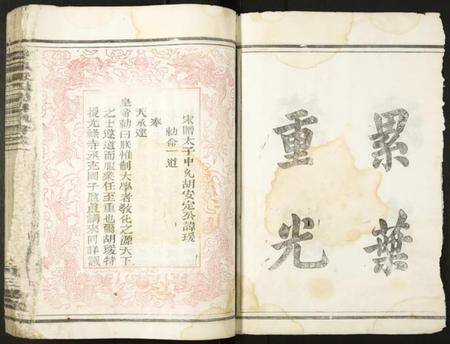 累葉
重光
宋贈太子中允胡安定公諱瑗
勅命一道
奉
天承運
皇帝勅曰朕惟制大學者敎化之源天下
之士遵道而服業任至重也爾胡瑗特
授光祿寺丞充國子監直講